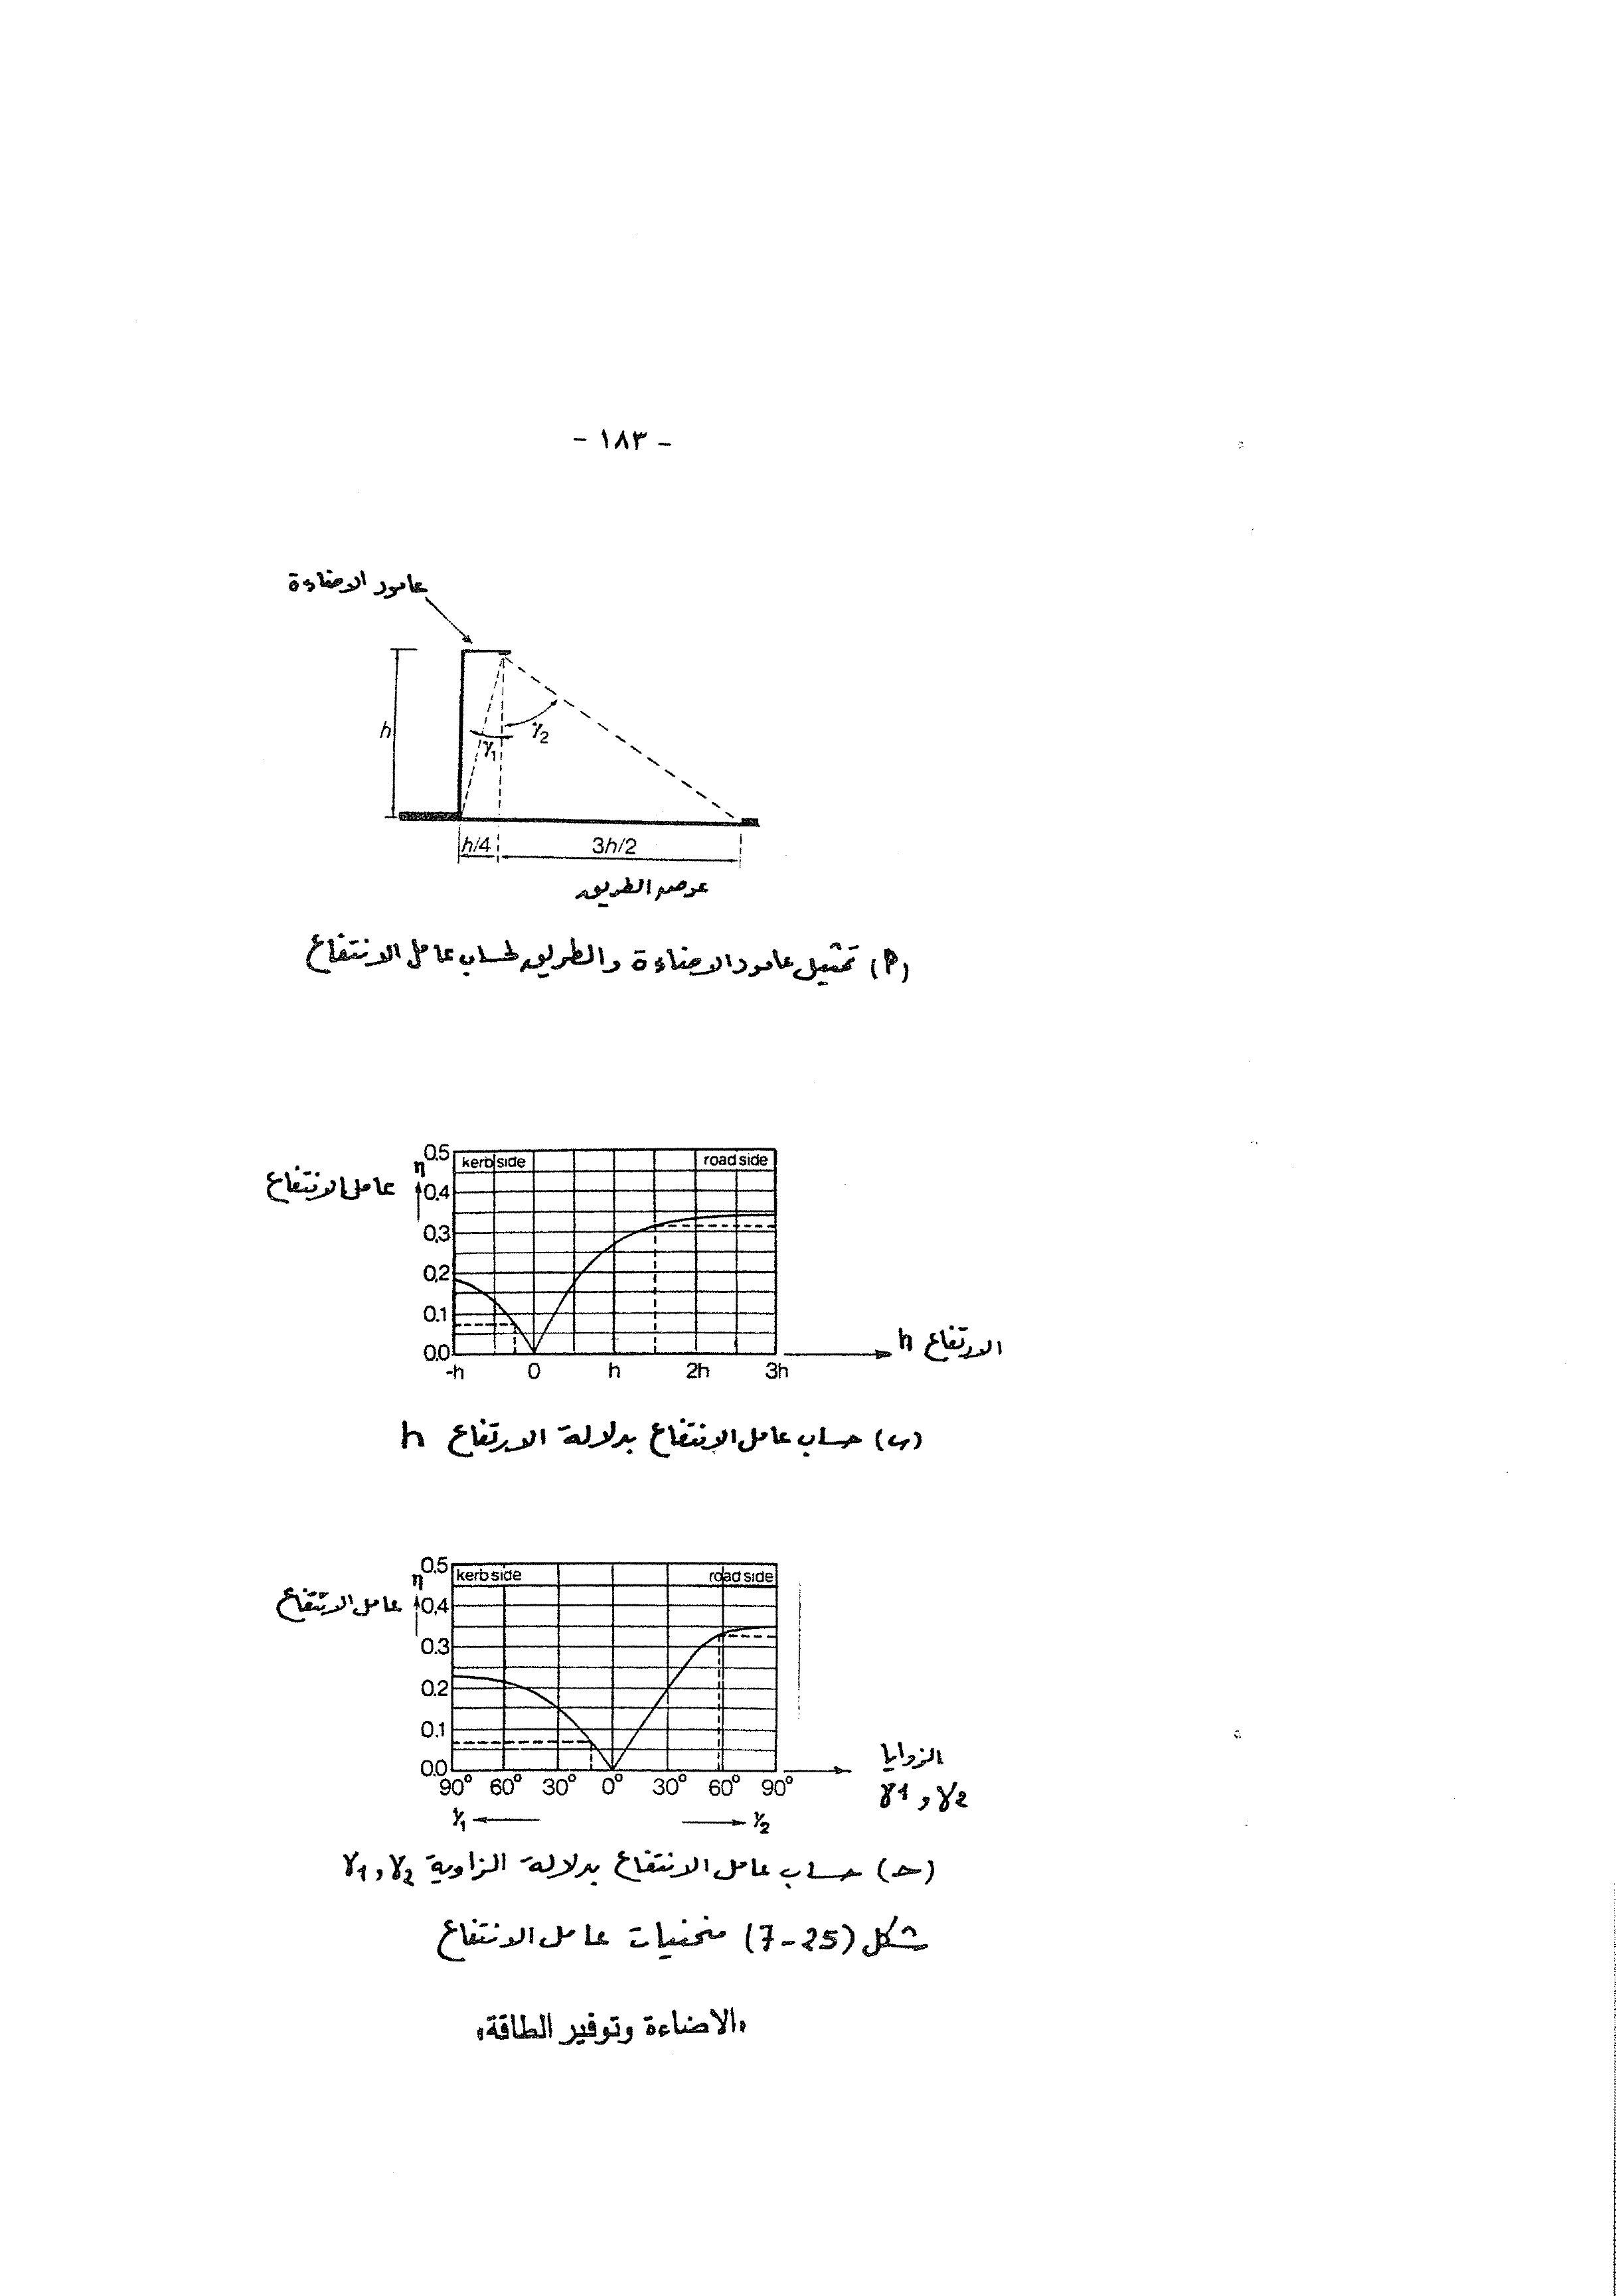 - ١٨٣ -
عامود الاضاءة
h
γ1
γ2
h/4
3h/2
عرض الطريق
(أ) تمثيل عامود الاضاءة والطريق لحساب عامل الانتفاع
عامل الانتفاع
η
0.5
0.4
0.3
0.2
0.1
0.0
kerb side
road side
-h 0 h 2h 3h
الارتفاع h
(ب) حساب عامل الانتفاع بدلالة الارتفاع h
عامل الانتفاع
η
0.5
0.4
0.3
0.2
0.1
0.0
kerb side
road side
90° 60° 30° 0° 30° 60° 90°
γ1
γ2
الزوايا
γ1 و γ2
(حـ) حساب عامل الانتفاع بدلالة الزاوية γ1 و γ2
شكل (7-25) منحنيات عامل الانتفاع
«الاضاءة وتوفير الطاقة»